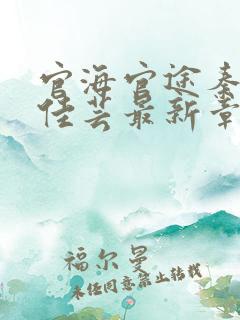 官海官途秦
佳芸最新章
福尔曼
未经同意禁止转载